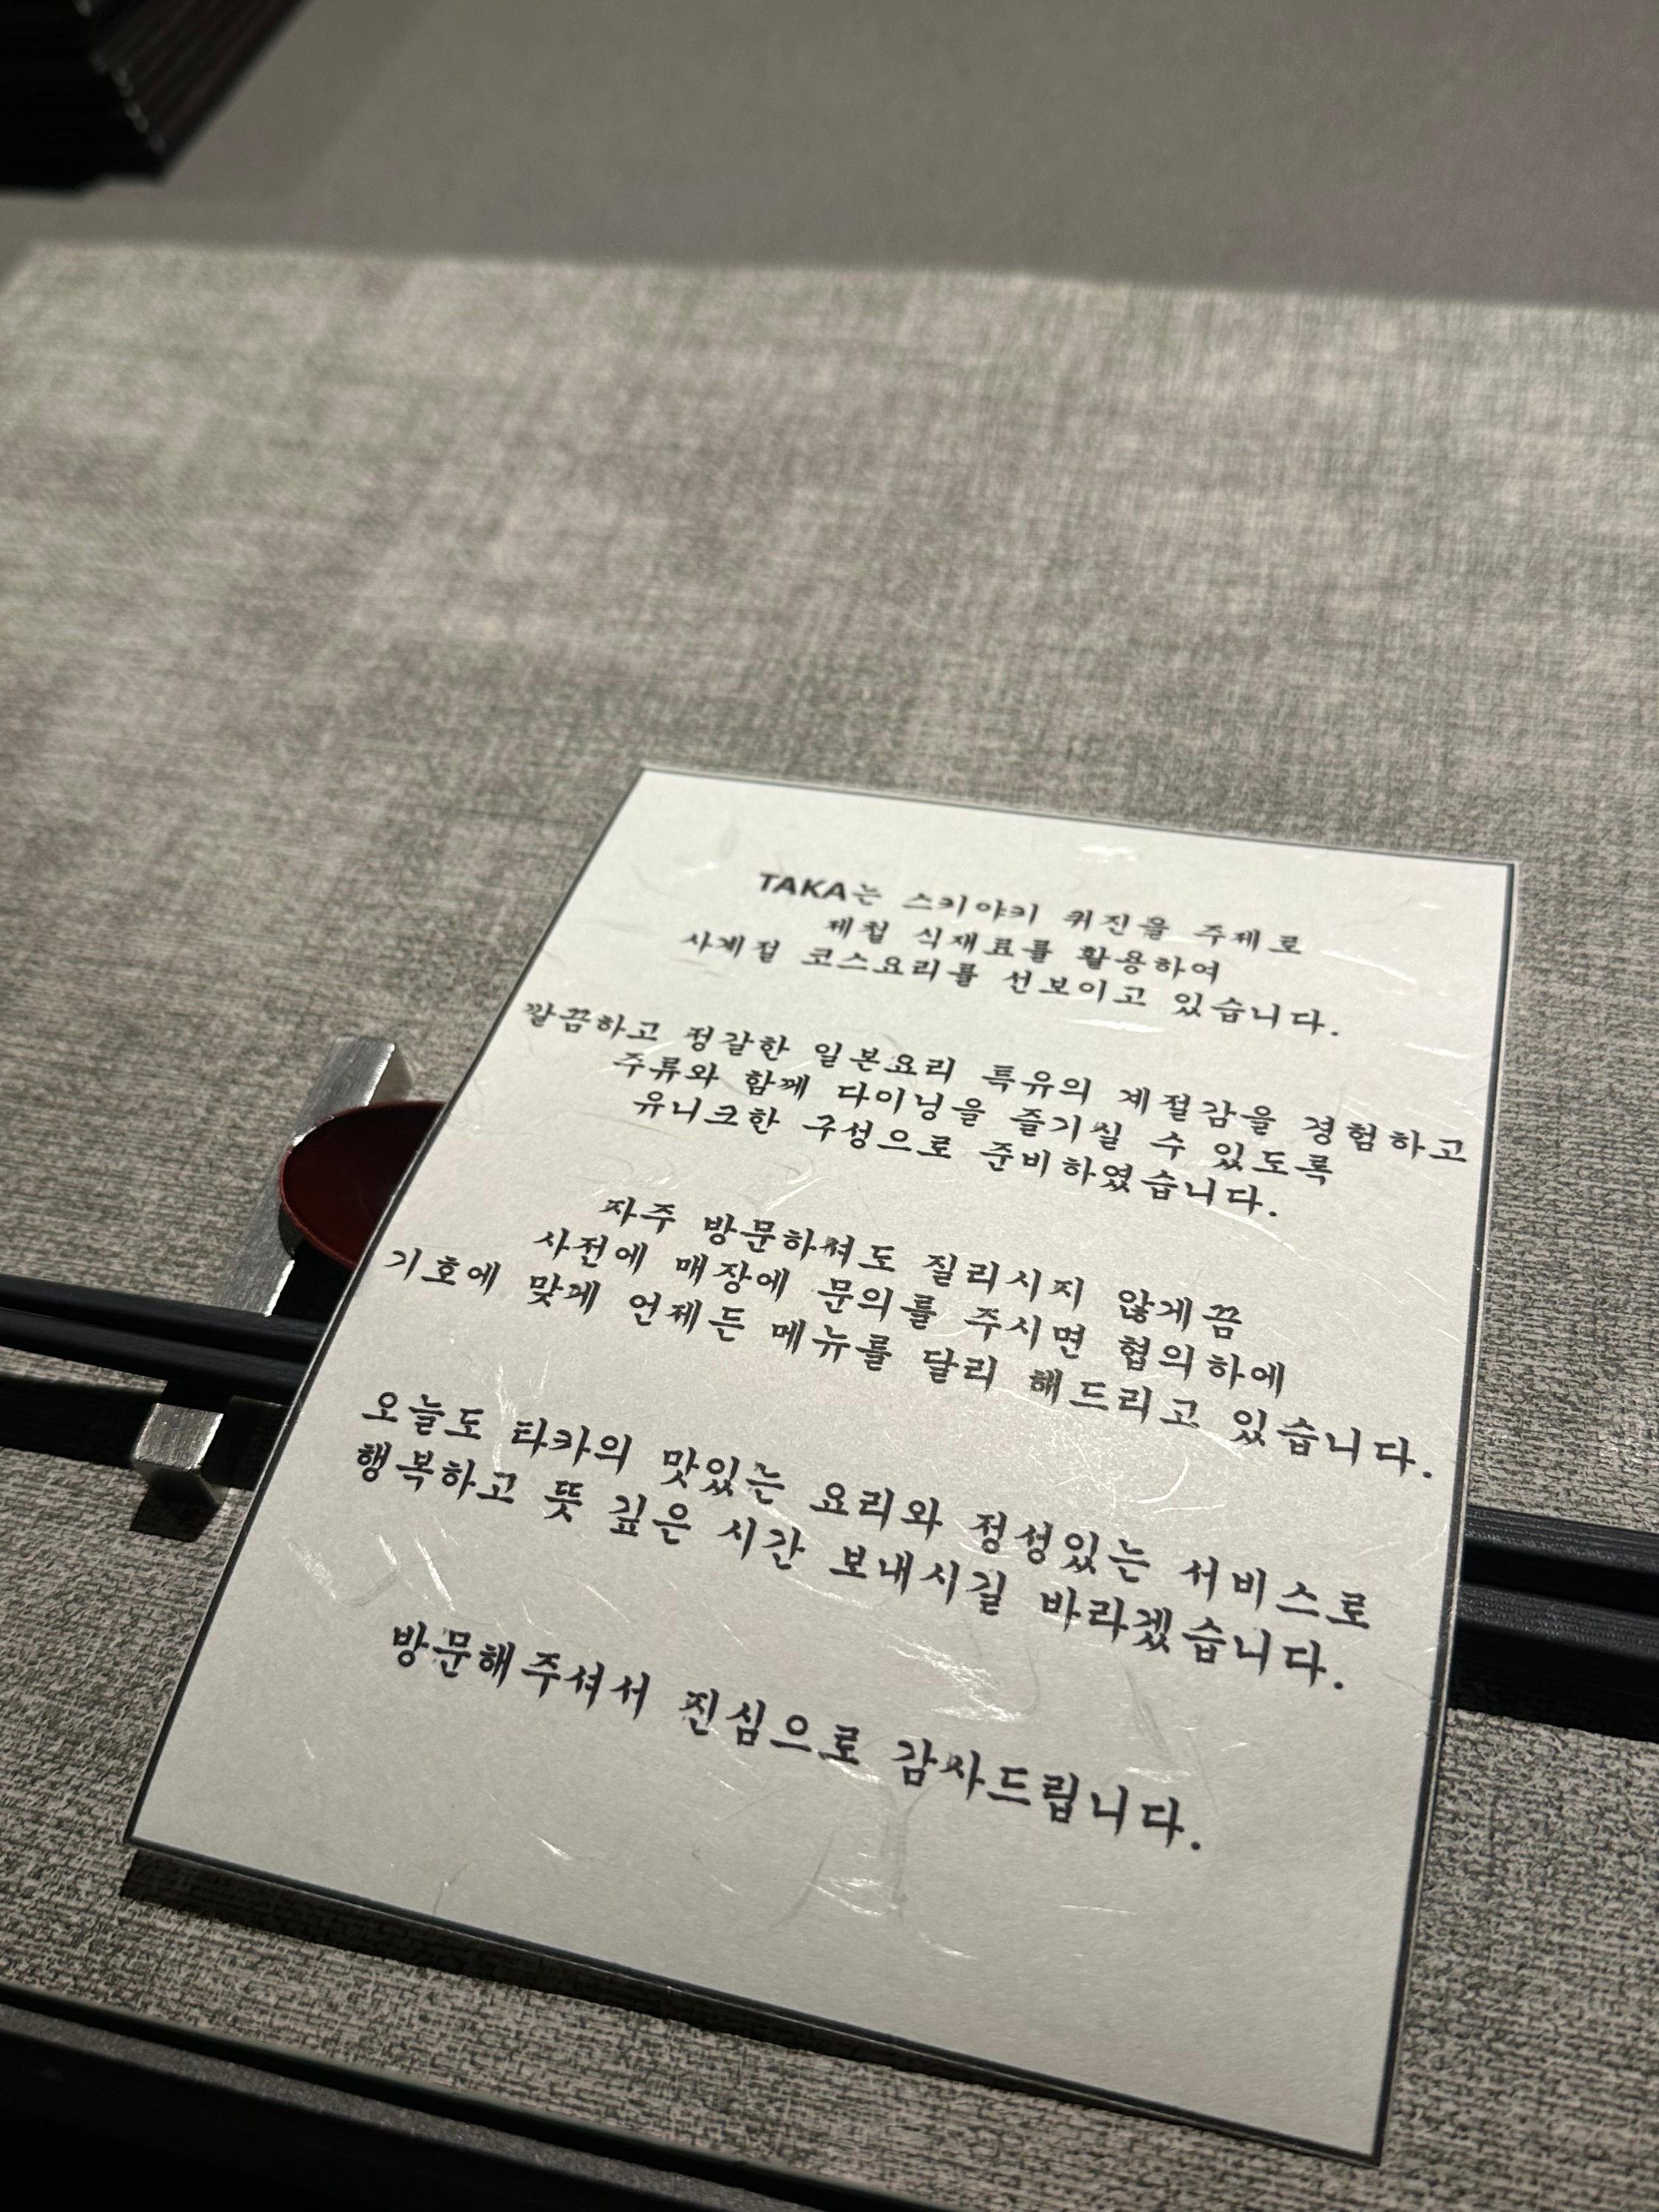 TAKA는 스키야키 퀴진을 주제로
제철 식재료를 활용하여
사계절 코스요리를 선보이고 있습니다.
깔끔하고 정갈한 일본요리 특유의 계절감을 경험하고
주류와 함께 다이닝을 즐기실 수 있도록
유니크한 구성으로 준비하였습니다.
자주 방문하셔도 질리시지 않게끔
사전에 매장에 문의를 주시면 협의하에
기호에 맞게 언제든 메뉴를 달리 해드리고 있습니다.
오늘도 타카의 맛있는 요리와 정성있는 서비스로
행복하고 뜻 깊은 시간 보내시길 바라겠습니다.
방문해주셔서 진심으로 감사드립니다.